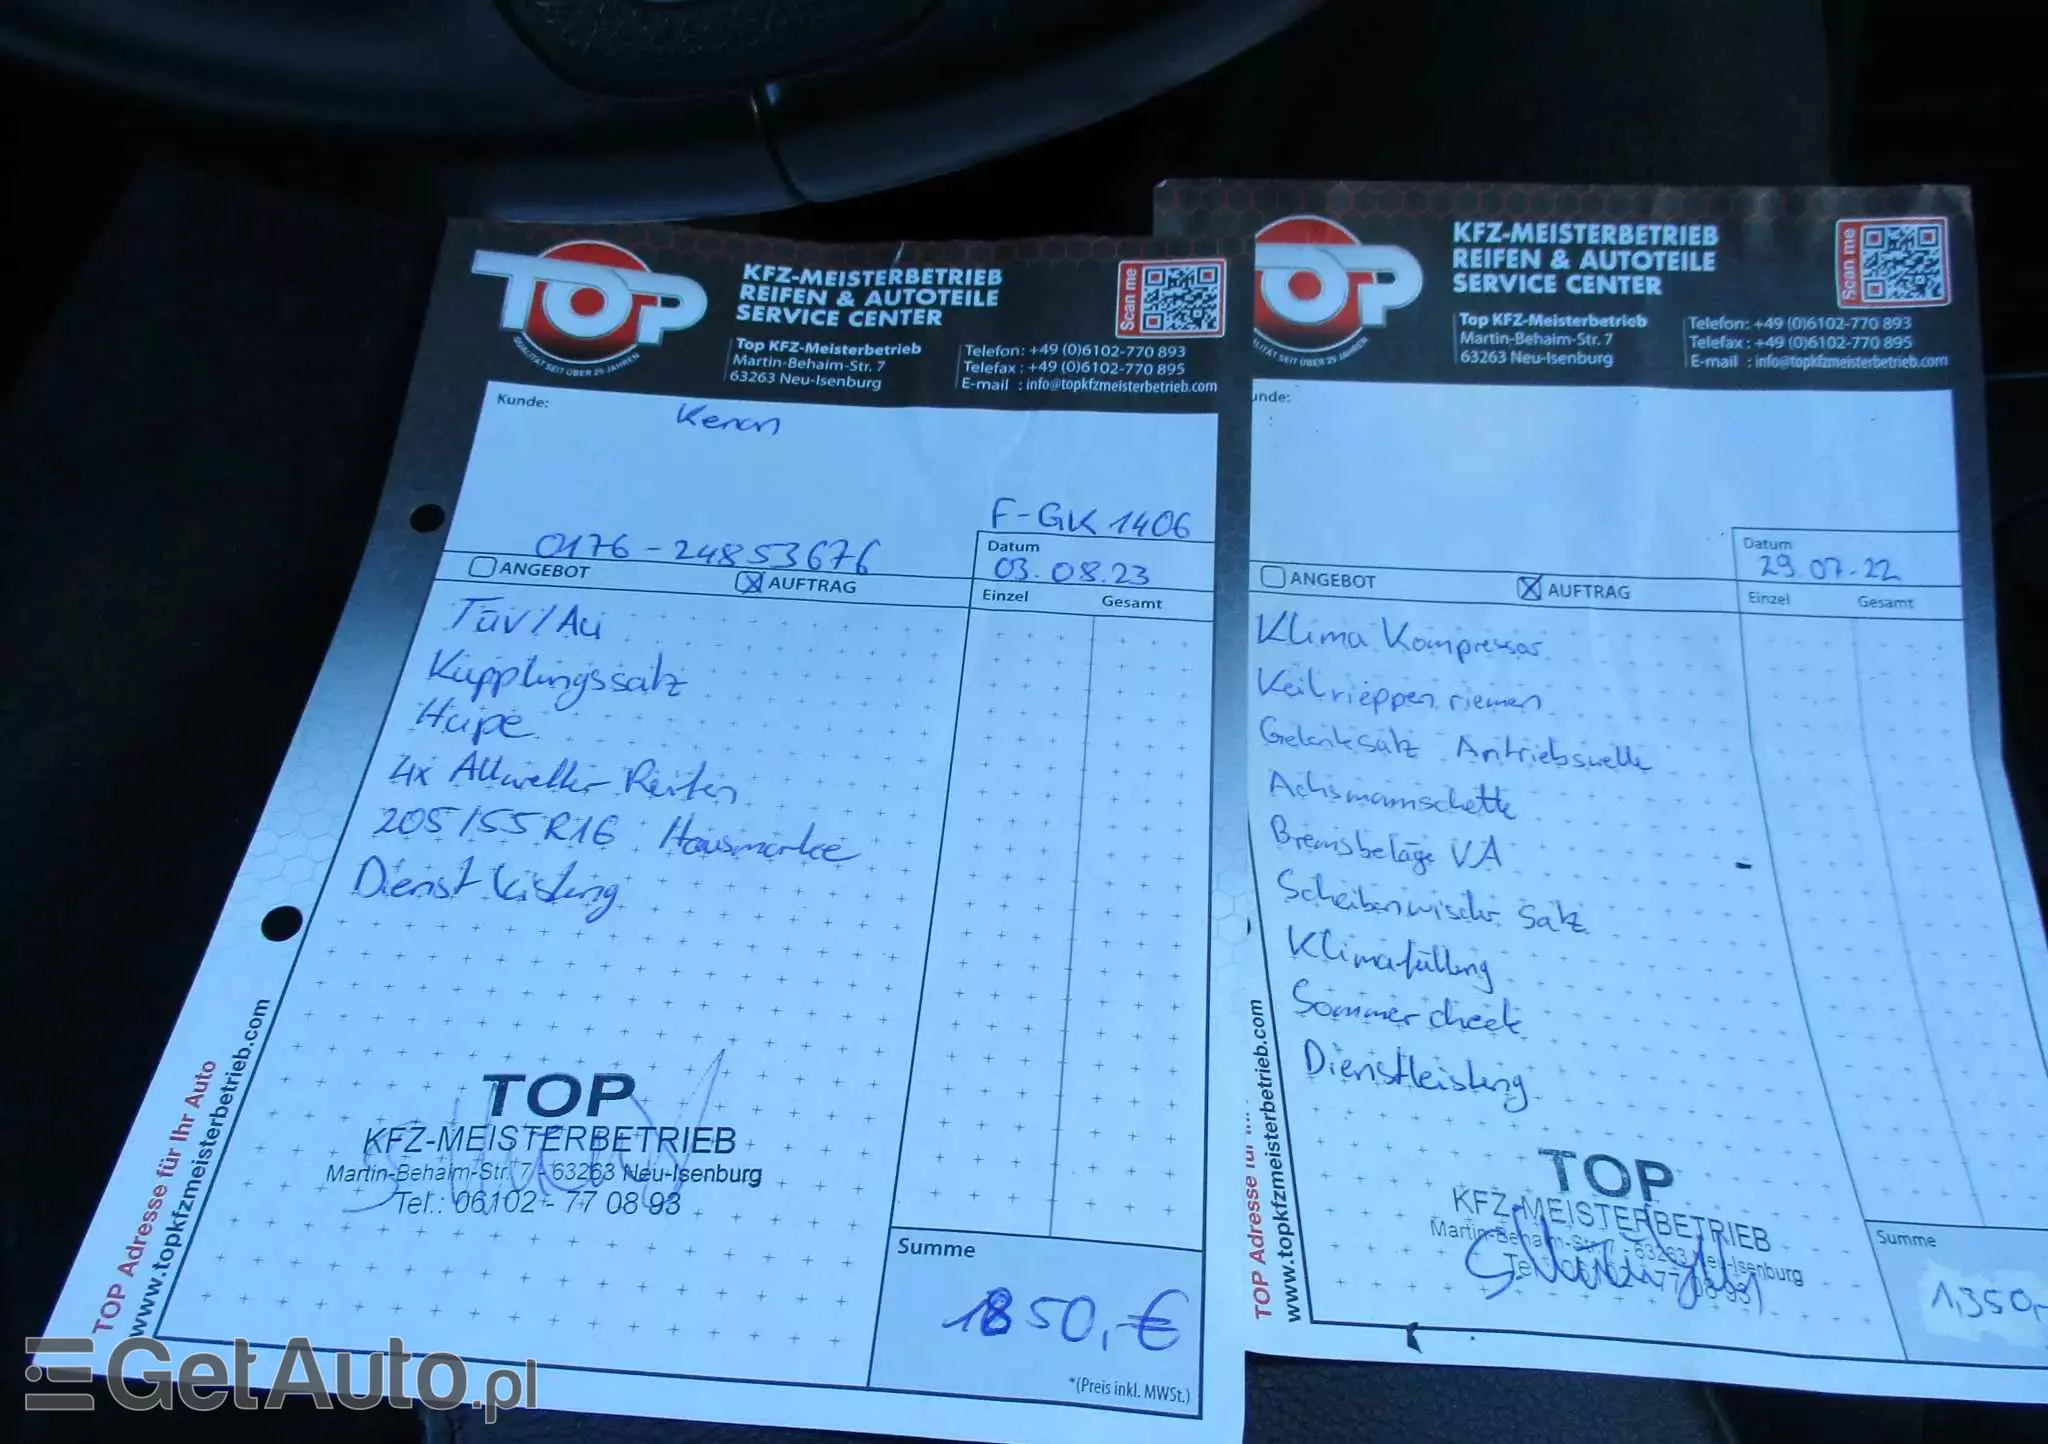 TOP
QUALITÄT SEIT ÜBER 25 JAHREN
KFZ-MEISTERBETRIEB
REIFEN & AUTOTEILE
SERVICE CENTER
Scan me
Top KFZ-Meisterbetrieb
Martin-Behaim-Str. 7
63263 Neu-Isenburg
Telefon: +49 (0)6102-770 893
Telefax : +49 (0)6102-770 895
E-mail : info@topkfzmeisterbetrieb.com
Kunde:
Kenan
F-GK 1406
0176-24853676
Datum
03.08.23
ANGEBOT
AUFTRAG
Einzel
Gesamt
Tüv/Au
Kupplungssatz
Hupe
4x Allwetter Reifen
205/55 R16 Hausmarke
Dienstleistung
TOP
KFZ-MEISTERBETRIEB
Martin-Behaim-Str. 7 - 63263 Neu-Isenburg
Tel.: 06102 - 77 08 93
Summe
1850,-€
*(Preis inkl. MWSt.)
TOP Adresse für Ihr Auto
www.topkfzmeisterbetrieb.com
TOP
ITÄT SEIT ÜBER 25 JAHREN
KFZ-MEISTERBETRIEB
REIFEN & AUTOTEILE
SERVICE CENTER
Scan me
Top KFZ-Meisterbetrieb
Martin-Behaim-Str. 7
63263 Neu-Isenburg
Telefon: +49 (0)6102-770 893
Telefax : +49 (0)6102-770 895
E-mail : info@topkfzmeisterbetrieb.com
unde:
Datum
29.07.22
ANGEBOT
AUFTRAG
Einzel
Gesamt
Klima Kompressor
Keilrieppen riemen
Gelenksatz Antriebswelle
Achsmanschette
Bremsbeläge VA
Scheibenwischer Satz
Klimafüllung
Sommer check
Dienstleistung
TOP
KFZ-MEISTERBETRIEB
Martin-Behaim-Str. 7 - 63263 Neu-Isenburg
Summe
1,350,-
TOP Adresse für I...
www.topkfzmeisterbetrieb.com
GetAuto.pl